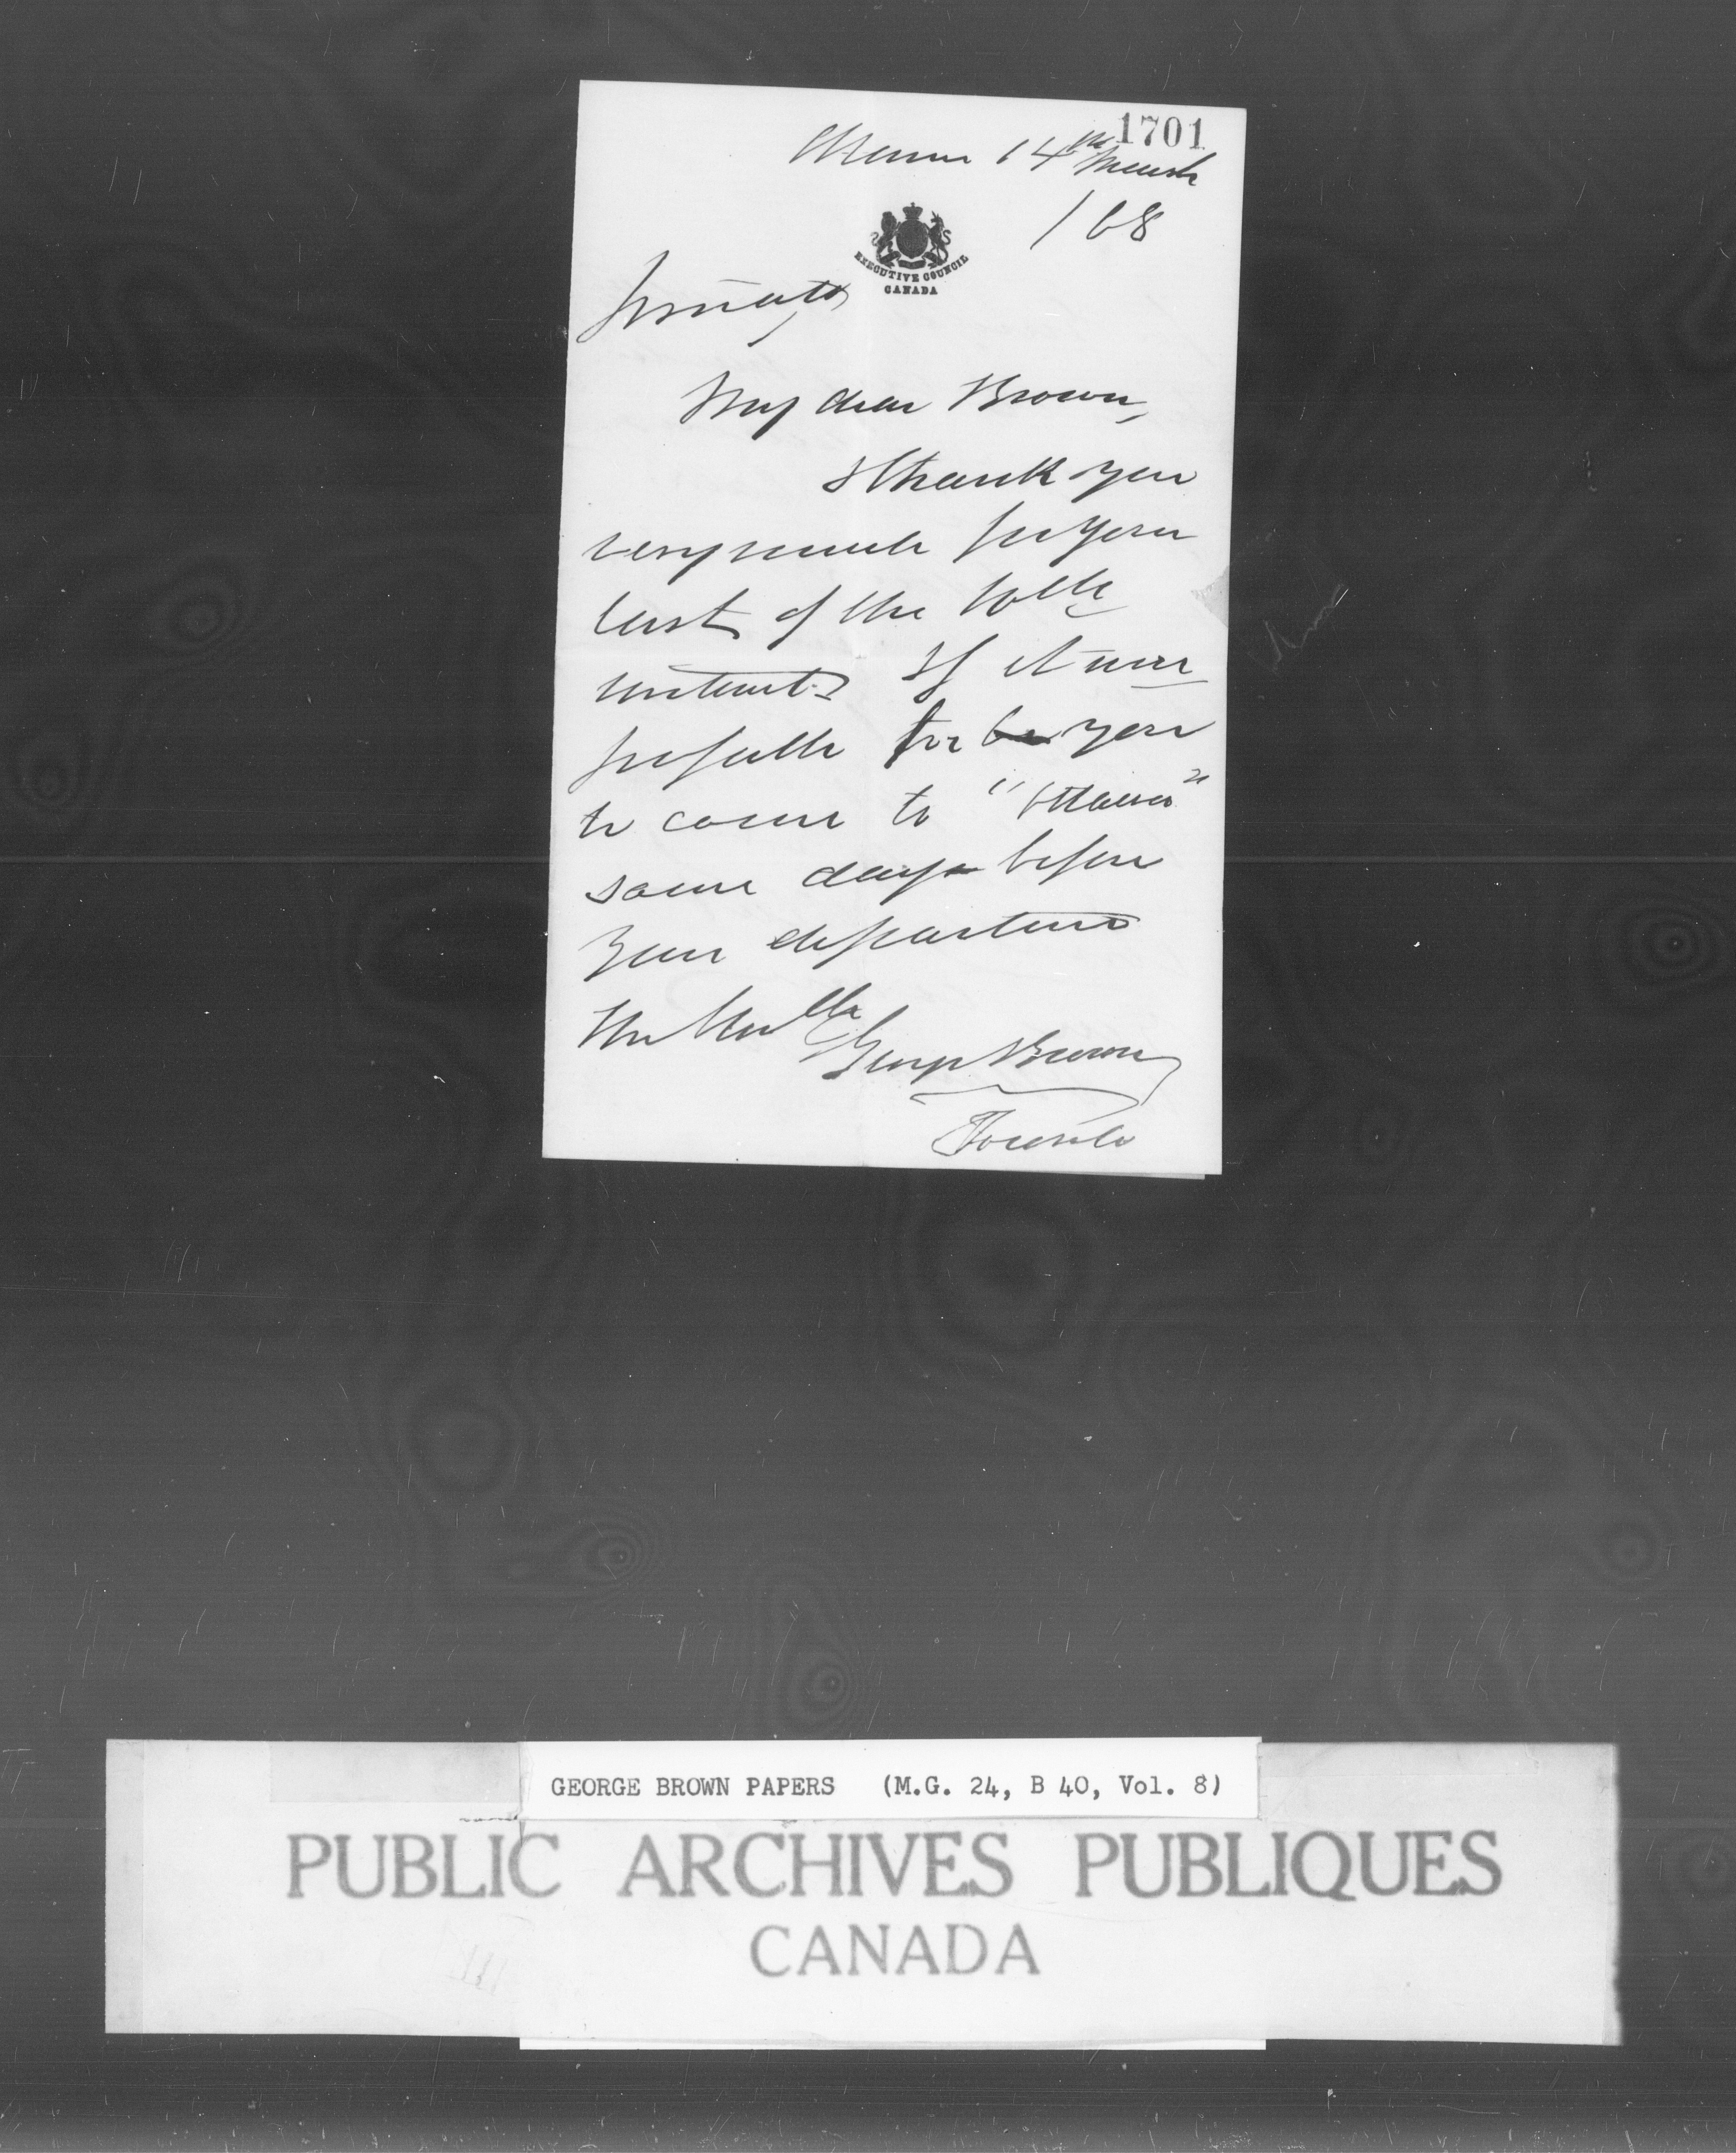 1701
Ottawa 14th March
/68
EXECUTIVE COUNCIL
CANADA
Private
My dear Brown,
I thank you
very much for your
last of the 10th
instant. If it were
possible for you
to come to "Ottawa"
some days before
your departure
The Honble
George Brown
Toronto
GEORGE BROWN PAPERS (M.G. 24, B 40, Vol. 8)
PUBLIC ARCHIVES PUBLIQUES
CANADA